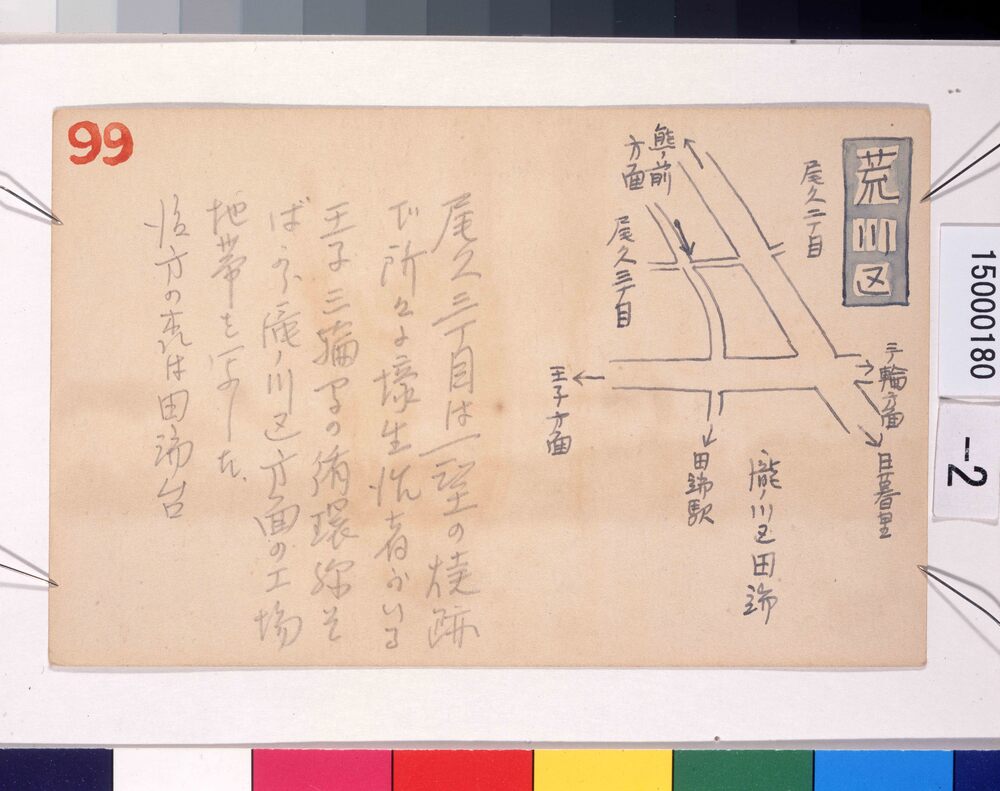 荒川区
尾久二丁目
熊ノ前
方面
尾久三丁目
三輪方面
日暮里
王子方面
田端駅
滝ノ川区田端
尾久三丁目は一望の焼跡
で所々に壕生活者がいる
王子三輪間の循環線を
へだてて滝ノ川区方面の工場
地帯を写した、
後方の森は田端台
99
15000180
-2